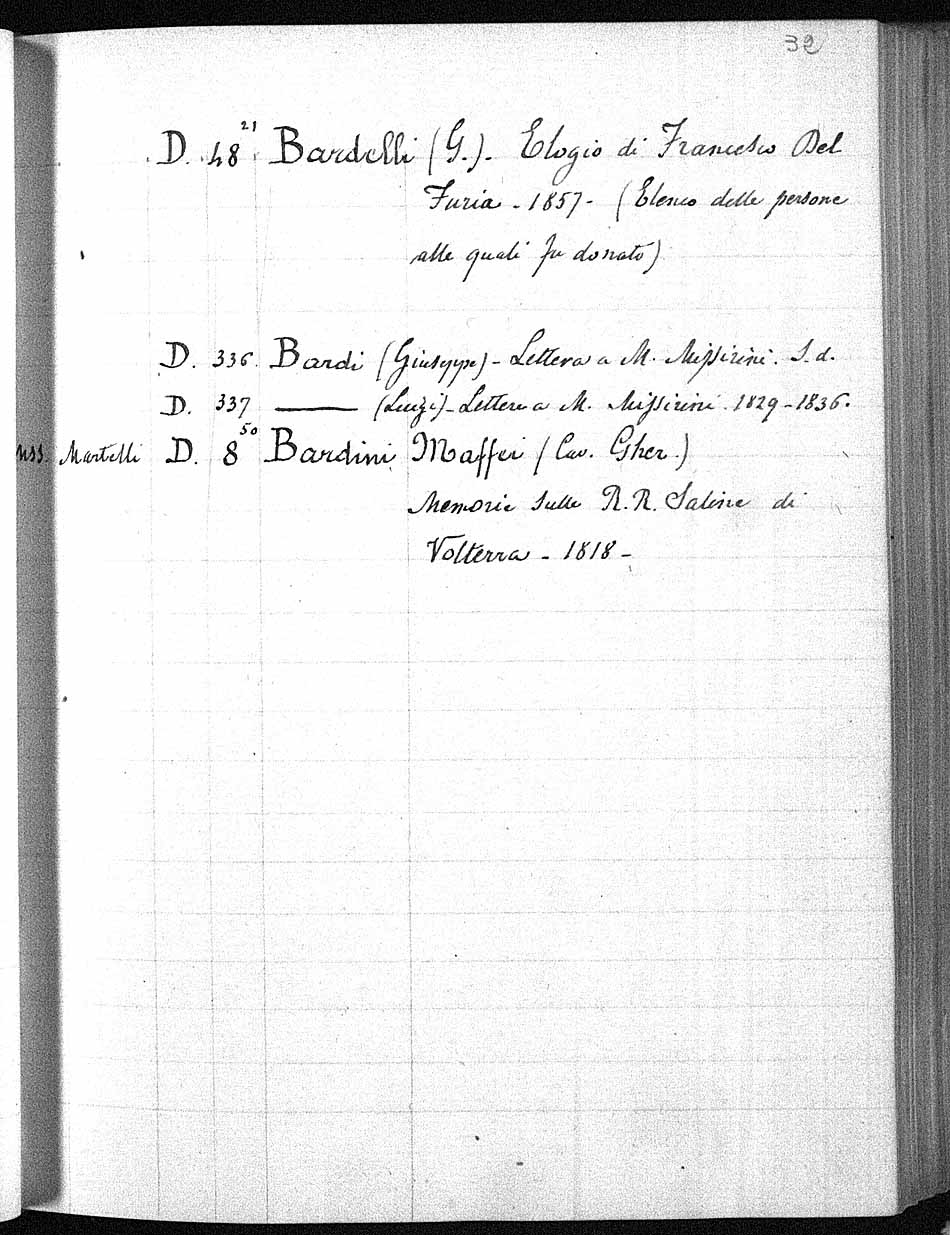 32
D. 48 21 Bardelli (G.). Elogio di Francesco Del
Furia - 1857 - (Elenco delle persone
alle quali fu donato)
D. 336. Bardi (Giuseppe) - Lettera a M. Missirini. S. d.
D. 337 —— (Luigi) - Lettere a M. Missirini. 1829-1836.
Mss. Martelli D. 8 50 Bardini Maffei (Cav. Gher.)
Memorie sulle R. R. Saline di
Volterra - 1818 -